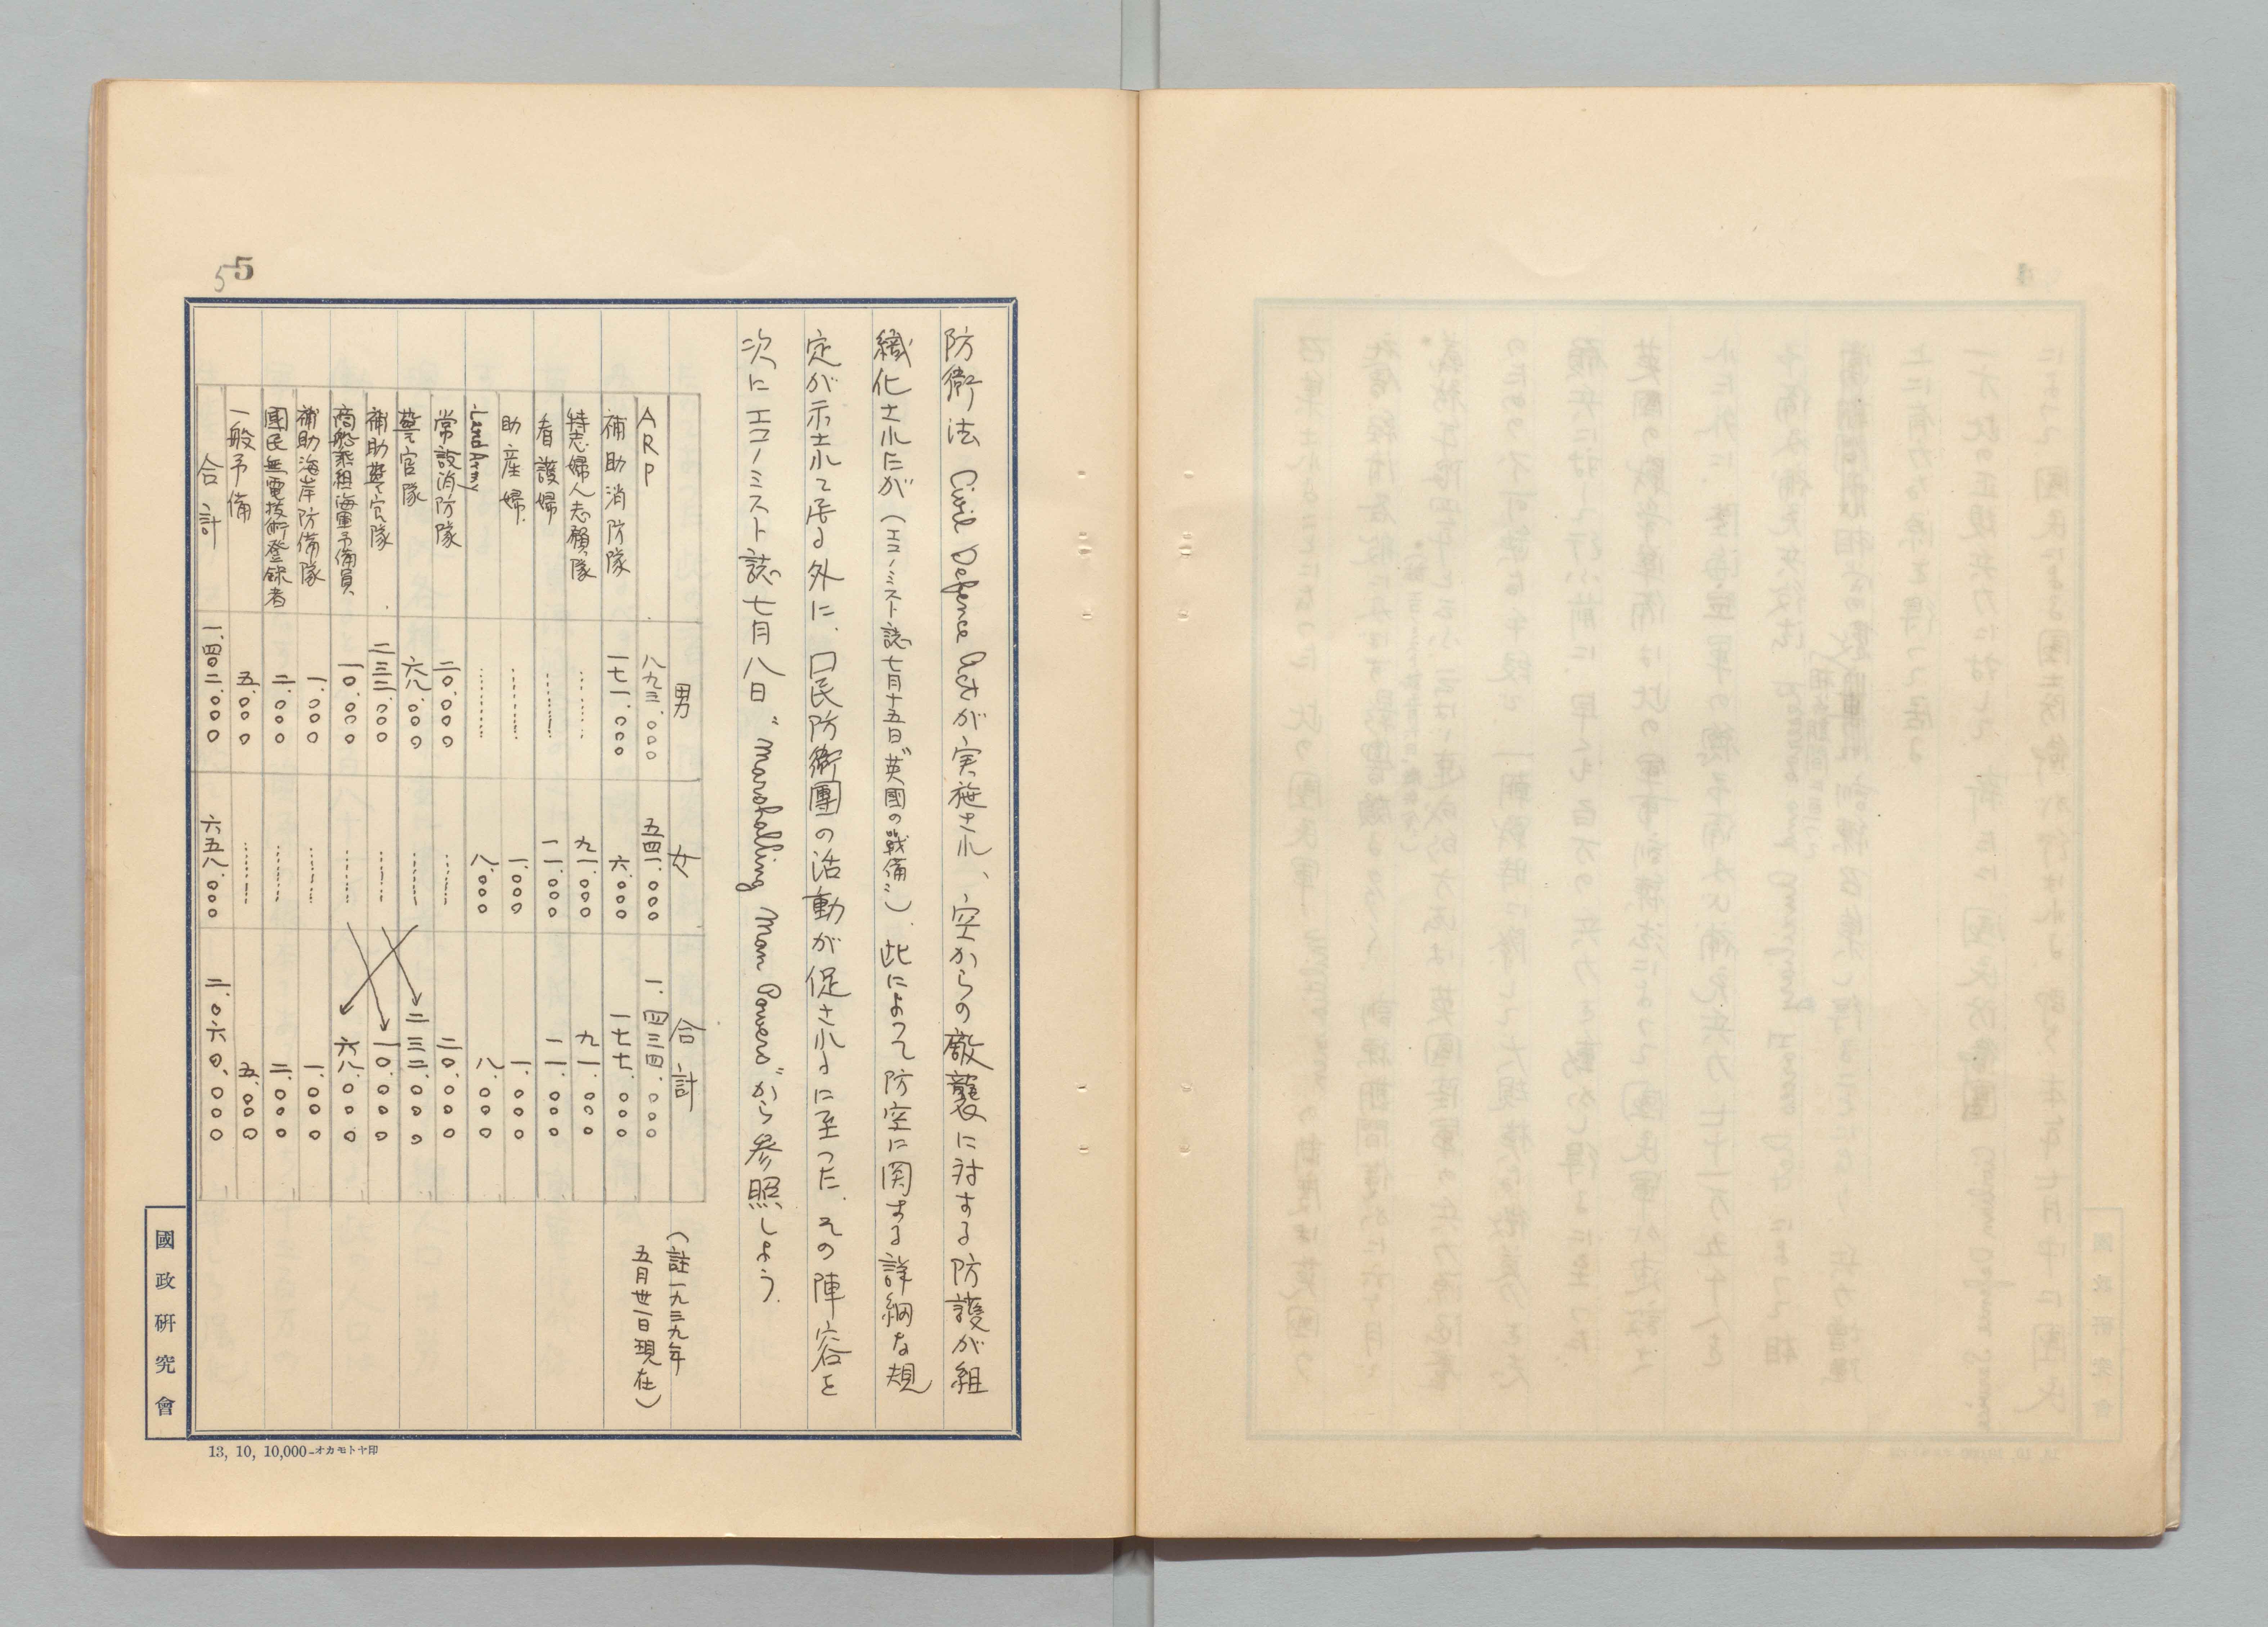 5
5
防衛法 Civil Defence Actが実施され、空からの敵襲に対する防護が組
織化されたが（エコノミスト誌七月十五日〝英國の戦備〟）、此によって防空に関する詳細な規
定が示されて居る外に、口民防衛團の活動が促されるに至った。その陣容を
次にエコノミスト誌七月八日〝Marshalling Man Powers〟から参照しよう。
（註一九三九年
五月卅一日現在）
男 女 合計
ARP 八九三.〇〇〇 五四一.〇〇〇 一.四三四.〇〇〇
補助消防隊 一七一.〇〇〇 六.〇〇〇 一七七.〇〇〇
特志婦人志願隊 …… 九一.〇〇〇 九一.〇〇〇
看護婦 …… 一一.〇〇〇 一一.〇〇〇
助産婦 …… 一.〇〇〇 一.〇〇〇
Land Army …… 八.〇〇〇 八.〇〇〇
常設消防隊 二〇.〇〇〇 …… 二〇.〇〇〇
警官隊 六八.〇〇〇 …… 二三二.〇〇〇
補助警官隊 二三二.〇〇〇 …… 一〇.〇〇〇
商船乘組海軍予備員 一〇.〇〇〇 …… 六八.〇〇〇
補助海岸防備隊 一.〇〇〇 …… 一.〇〇〇
國民無電技術登録者 二.〇〇〇 …… 二.〇〇〇
一般予備 五.〇〇〇 …… 五.〇〇〇
合計 一.四〇二.〇〇〇 六五八.〇〇〇 二.〇六〇.〇〇〇
國政研究會
13, 10, 10,000-オカモトヤ印